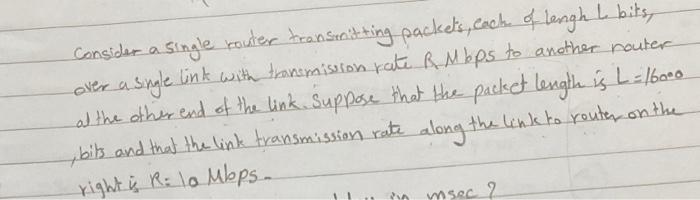 Consider a single router transmitting packets, each of lengh L bits,
over a single link with transmission rate R Mbps to another router
at the other end of the link. Suppose that the packet length is L=16000
, bits and that the link transmission rate along the link to router on the
right is R=10 Mbps.
in msec?